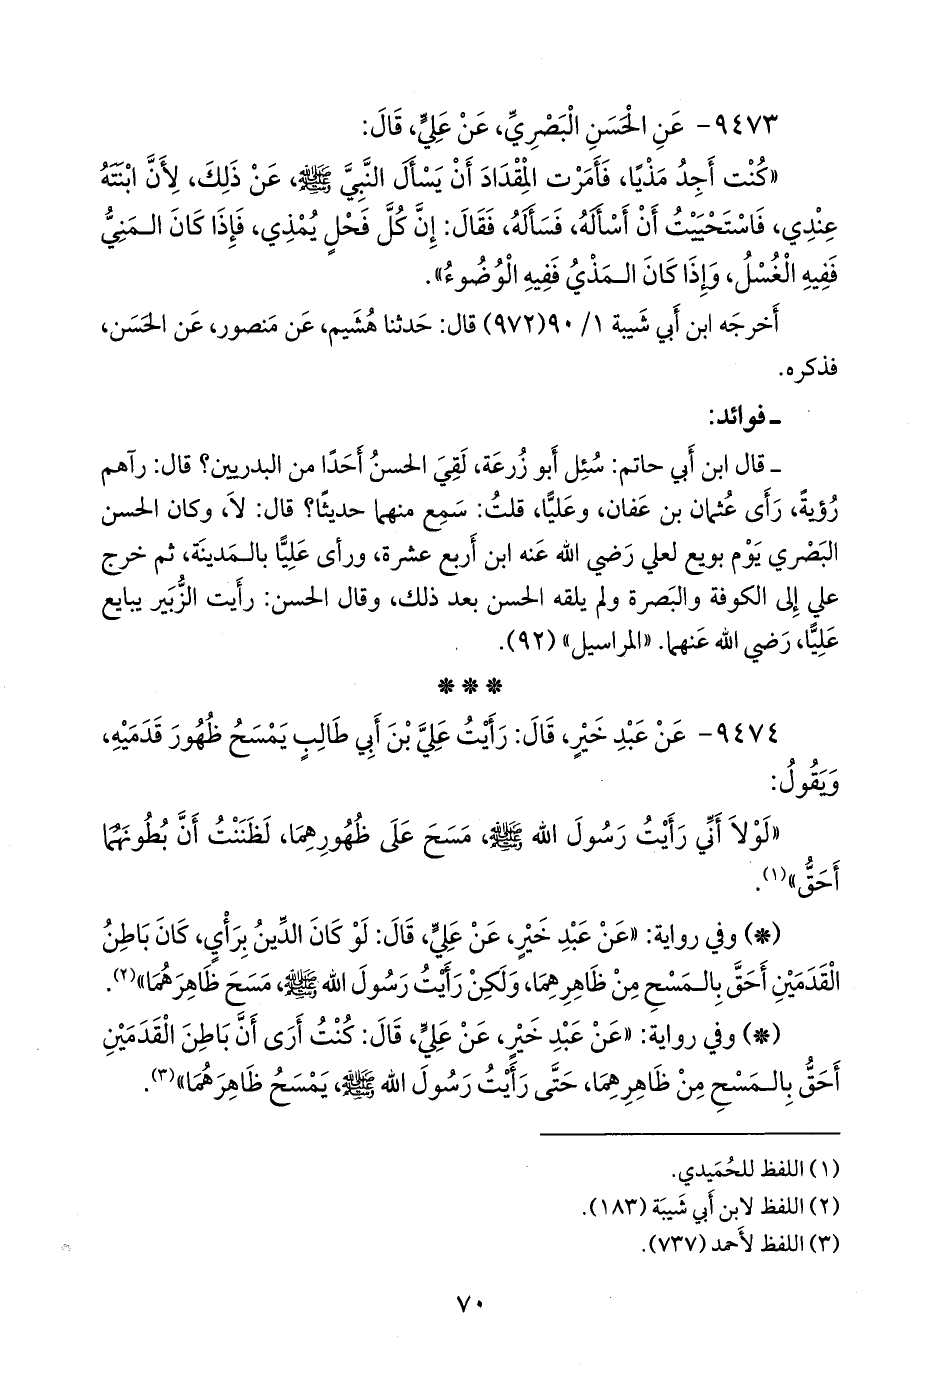 ٩٤٧٣- عَنِ الْحَسَنِ الْبَصْرِيِّ، عَنْ عَلِيٍّ، قَالَ:
«كُنْت أَجِدُ مَذْيًا، فَأَمَرْت الْمِقْدَادَ أَنْ يَسْأَلَ النَّبِيَّ ﷺ، عَنْ ذَلِكَ، لِأَنَّ ابْنَتَهُ
عِنْدِي، فَاسْتَحْيَيْتُ أَنْ أَسْأَلَهُ، فَسَأَلَهُ، فَقَالَ: إِنَّ كُلَّ فَحْلٍ يُمْذِي، فَإِذَا كَانَ الـمَنِيُّ
فَفِيهِ الْغُسْلُ، وَإِذَا كَانَ الـمَذْيُ فَفِيهِ الْوُضُوءُ».
أَخرجَه ابن أَبي شَيبة ١/ ٩٠(٩٧٢) قال: حَدثنا هُشَيم، عَن مَنصور، عَن الحَسَن،
فذكره.
ـ فوائد:
ـ قال ابن أَبي حاتم: سُئِل أَبو زُرعَة، لَقِيَ الحسنُ أَحَدًا من البدريين؟ قال: رآهم
رُؤيةً، رَأَى عُثمان بن عَفان، وعَليًّا، قلتُ: سَمِع منهما حديثًا؟ قال: لاَ، وكان الحسن
البَصْري يَوْم بويع لعلي رَضي الله عَنه ابن أَربع عشرة، ورأى عَليًّا بالـمَدينَة، ثم خرج
علي إِلى الكوفة والبَصرة ولم يلقه الحسن بعد ذلك، وقال الحسن: رأَيت الزُّبَير يبايع
عَلِيًّا، رَضي الله عَنهما. «المراسيل» (٩٢).
* * *
٩٤٧٤- عَنْ عَبْدِ خَيْرٍ، قَالَ: رَأَيْتُ عَلِيَّ بْنَ أَبِي طَالِبٍ يَمْسَحُ ظُهُورَ قَدَمَيْهِ،
وَيَقُولُ:
«لَوْلاَ أَنِّي رَأَيْتُ رَسُولَ الله ﷺ، مَسَحَ عَلَى ظُهُورِهِمَا، لَظَنَنْتُ أَنَّ بُطُونَهُمَا
أَحَقُّ»(١).
(*) وفي رواية: «عَنْ عَبْدِ خَيْرٍ، عَنْ عَلِيٍّ، قَالَ: لَوْ كَانَ الدِّينُ بِرَأْيٍ، كَانَ بَاطِنُ
الْقَدَمَيْنِ أَحَقَّ بِالـمَسْحِ مِنْ ظَاهِرِهِمَا، وَلَكِنْ رَأَيْتُ رَسُولَ الله ﷺ، مَسَحَ ظَاهِرَهُمَا»(٢).
(*) وفي رواية: «عَنْ عَبْدِ خَيْرٍ، عَنْ عَلِيٍّ، قَالَ: كُنْتُ أَرَى أَنَّ بَاطِنَ الْقَدَمَيْنِ
أَحَقُّ بِالـمَسْحِ مِنْ ظَاهِرِهِمَا، حَتَّى رَأَيْتُ رَسُولَ الله ﷺ، يَمْسَحُ ظَاهِرَهُمَا»(٣).
(١) اللفظ للحُمَيدي.
(٢) اللفظ لابن أَبي شَيبَة (١٨٣).
(٣) اللفظ لأَحمد (٧٣٧).
٧٠